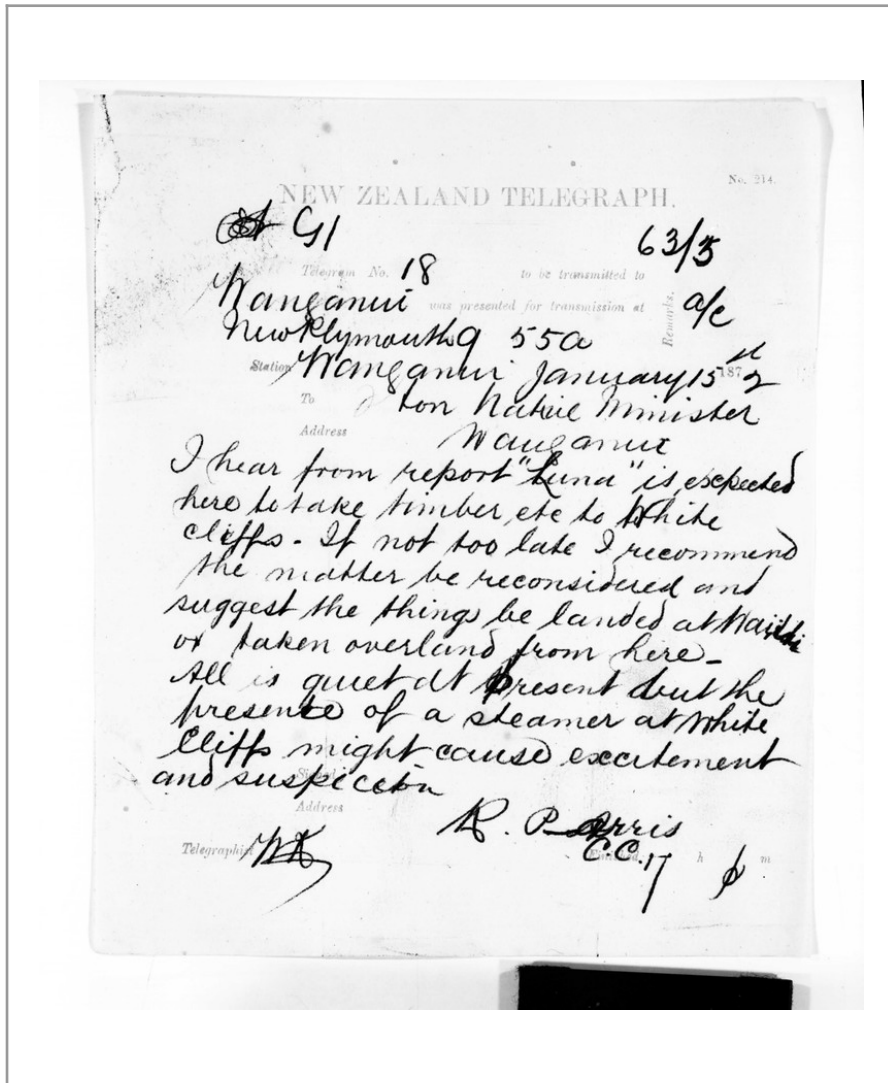 No. 214.
NEW ZEALAND TELEGRAPH.
G1 63/5
Telegram No. 18 to be transmitted to
Wanganui was presented for transmission at
Remarks. a/c
New Plymouth 9 55a
Station Wanganui January 15 1872
To Hon Native Minister
Address Wanganui
I hear from report "Luna" is expected
here to take timber etc to White
Cliffs - If not too late I recommend
the matter be reconsidered and
suggest the things be landed at
or taken overland from here -
All is quiet at present but the
presence of a steamer at White
Cliffs might cause excitement
and suspicion
Signed
Address
R. Parris
C.C.
Telegraphist h m